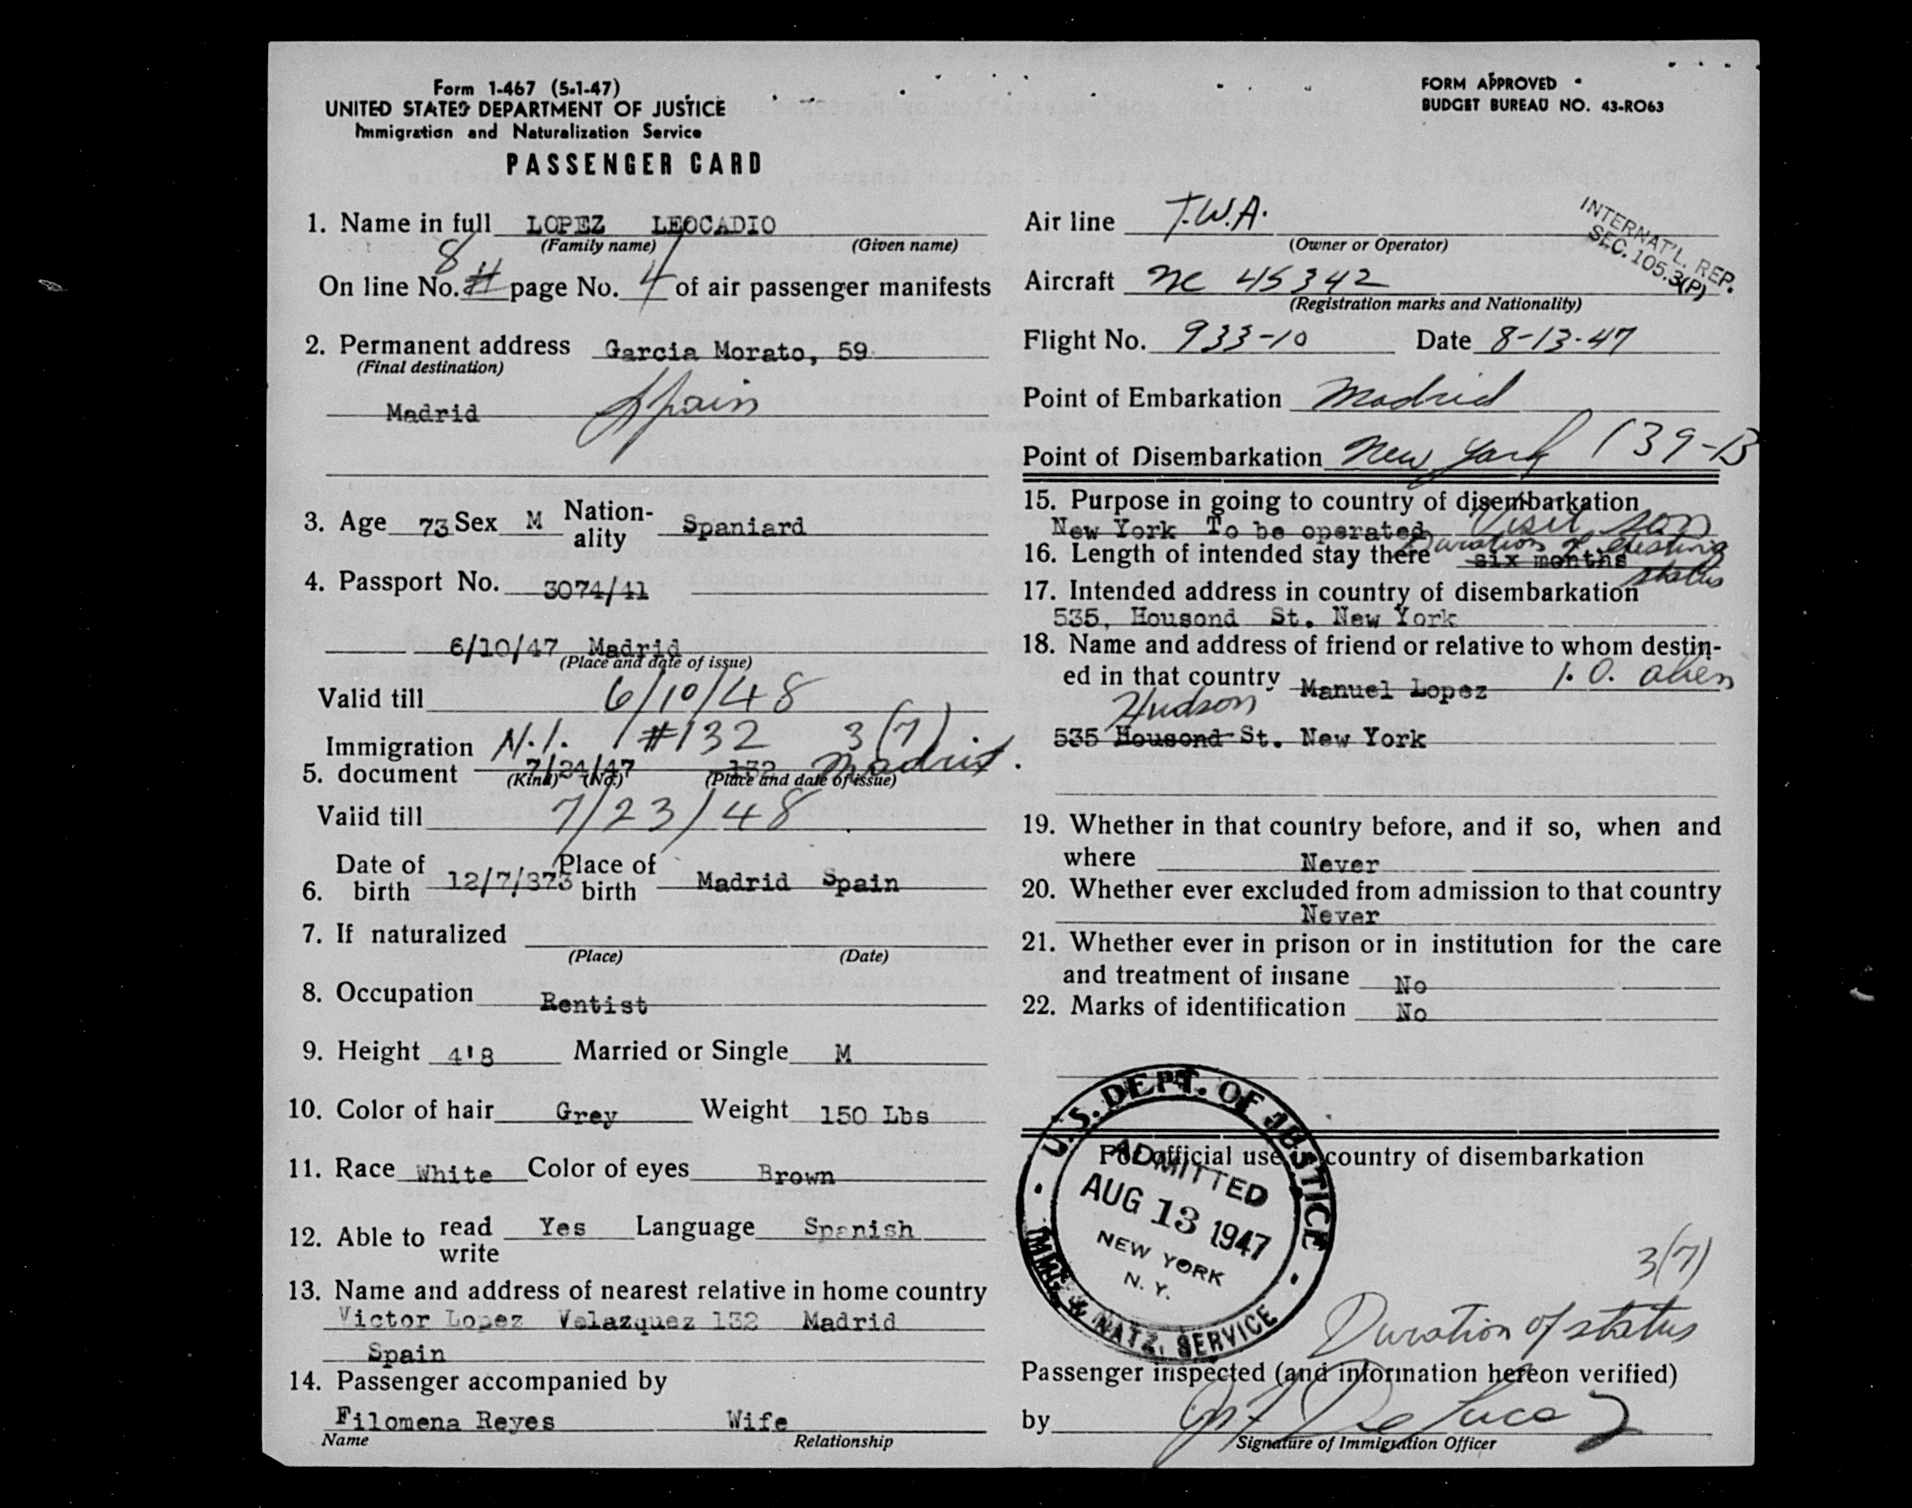 Form 1-467 (5-1-47)
UNITED STATES DEPARTMENT OF JUSTICE
Immigration and Naturalization Service
PASSENGER CARD
FORM APPROVED
BUDGET BUREAU NO. 43-RO63
1. Name in full LOPEZ LEOCADIO
(Family name) (Given name)
8
On line No. page No. 4 of air passenger manifests
2. Permanent address Garcia Morato, 59
(Final destination)
Madrid Spain
3. Age 73 Sex M Nation-ality Spaniard
4. Passport No. 3074/41
6/10/47 Madrid
(Place and date of issue)
Valid till 6/10/48
Immigration N.I. #132 3(7)
5. document 7/24/47 132 Madrid.
(Kind) (No.) (Place and date of issue)
Valid till 7/23/48
6. Date of birth 12/7/873 Place of birth Madrid Spain
7. If naturalized
(Place) (Date)
8. Occupation Rentist
9. Height 4'8 Married or Single M
10. Color of hair Grey Weight 150 Lbs
11. Race White Color of eyes Brown
12. Able to read write Yes Language Spanish
13. Name and address of nearest relative in home country
Victor Lopez Velazquez 132 Madrid
Spain
14. Passenger accompanied by
Filomena Reyes Wife
Name Relationship
Air line T.W.A.
(Owner or Operator)
INTERNAT'L. REP.
SEC. 105.3(P)
Aircraft NC 45342
(Registration marks and Nationality)
Flight No. 933-10 Date 8-13-47
Point of Embarkation Madrid
Point of Disembarkation New York 139-B
15. Purpose in going to country of disembarkation
New York To be operated Visit son
Duration of existing status
16. Length of intended stay there six months
17. Intended address in country of disembarkation
535, Housond St. New York
18. Name and address of friend or relative to whom destin-
ed in that country Manuel Lopez 1. O. alien
Hudson
535 Housond St. New York
19. Whether in that country before, and if so, when and
where Never
20. Whether ever excluded from admission to that country
Never
21. Whether ever in prison or in institution for the care
and treatment of insane No
22. Marks of identification No
For official use country of disembarkation
U.S. DEPT. OF JUSTICE
ADMITTED
AUG 13 1947
NEW YORK
N. Y.
IMMG. & NATZ. SERVICE
3(7)
Duration of status
Passenger inspected (and information hereon verified)
by De Luca
Signature of Immigration Officer